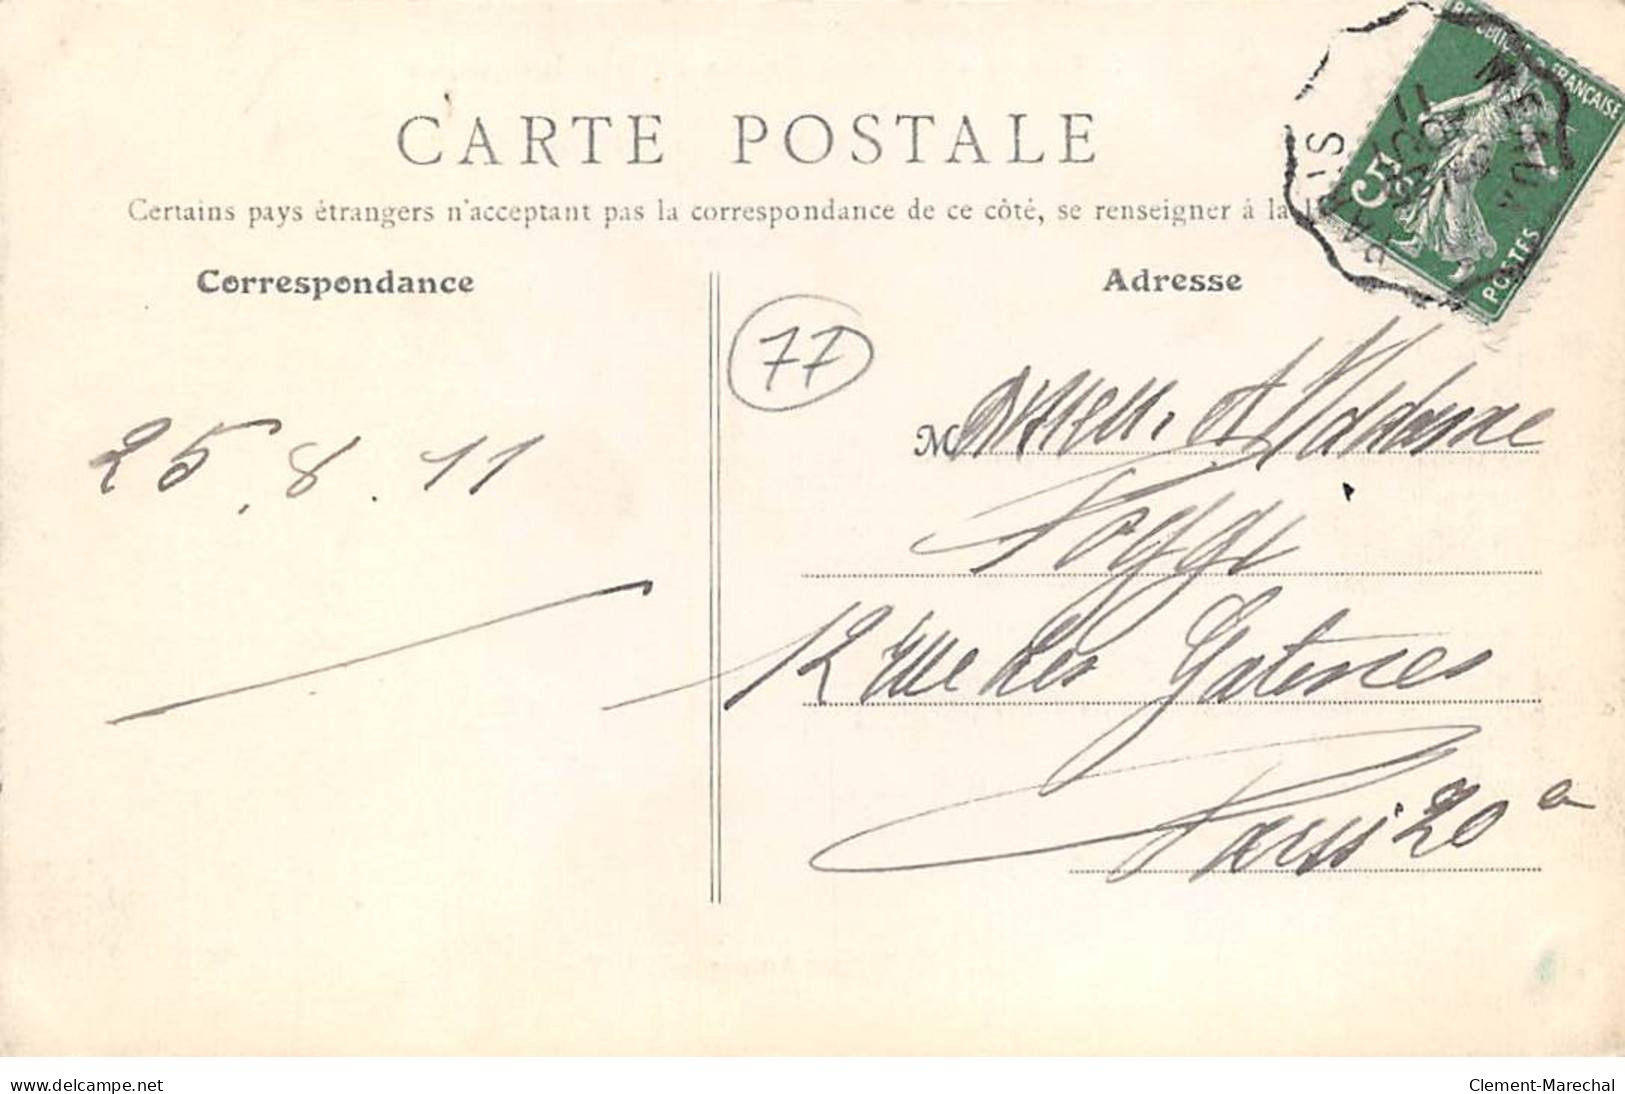 CARTE POSTALE
Certains pays étrangers n'acceptant pas la correspondance de ce côté, se renseigner à la
Correspondance
Adresse
RÉPUBLIQUE FRANÇAISE
5
POSTES
PARIS
77
25.8.11
Monsieur et Madame
Poggi
12 rue des Gatines
Paris 20e
www.delcampe.net
Clement-Marechal